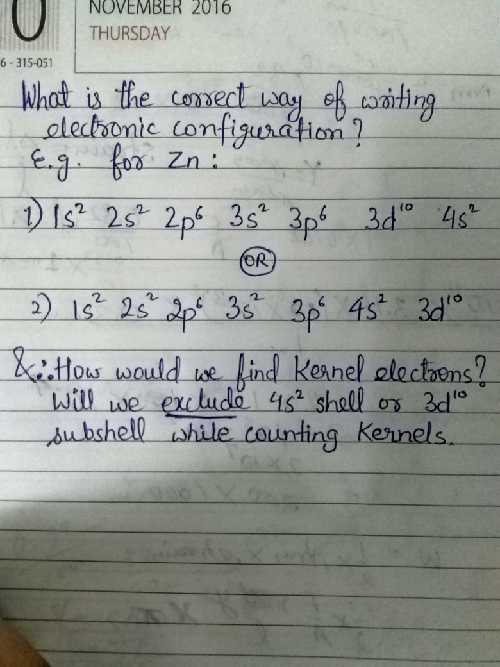 NOVEMBER 2016
THURSDAY
6 - 315-051
What is the correct way of writing
electronic configuration?
E.g. for Zn :
1) 1s² 2s² 2p⁶ 3s² 3p⁶ 3d¹⁰ 4s²
OR
2) 1s² 2s² 2p⁶ 3s² 3p⁶ 4s² 3d¹⁰
&∴ How would we find Kernel electrons?
Will we exclude 4s² shell or 3d¹⁰
subshell while counting Kernels.